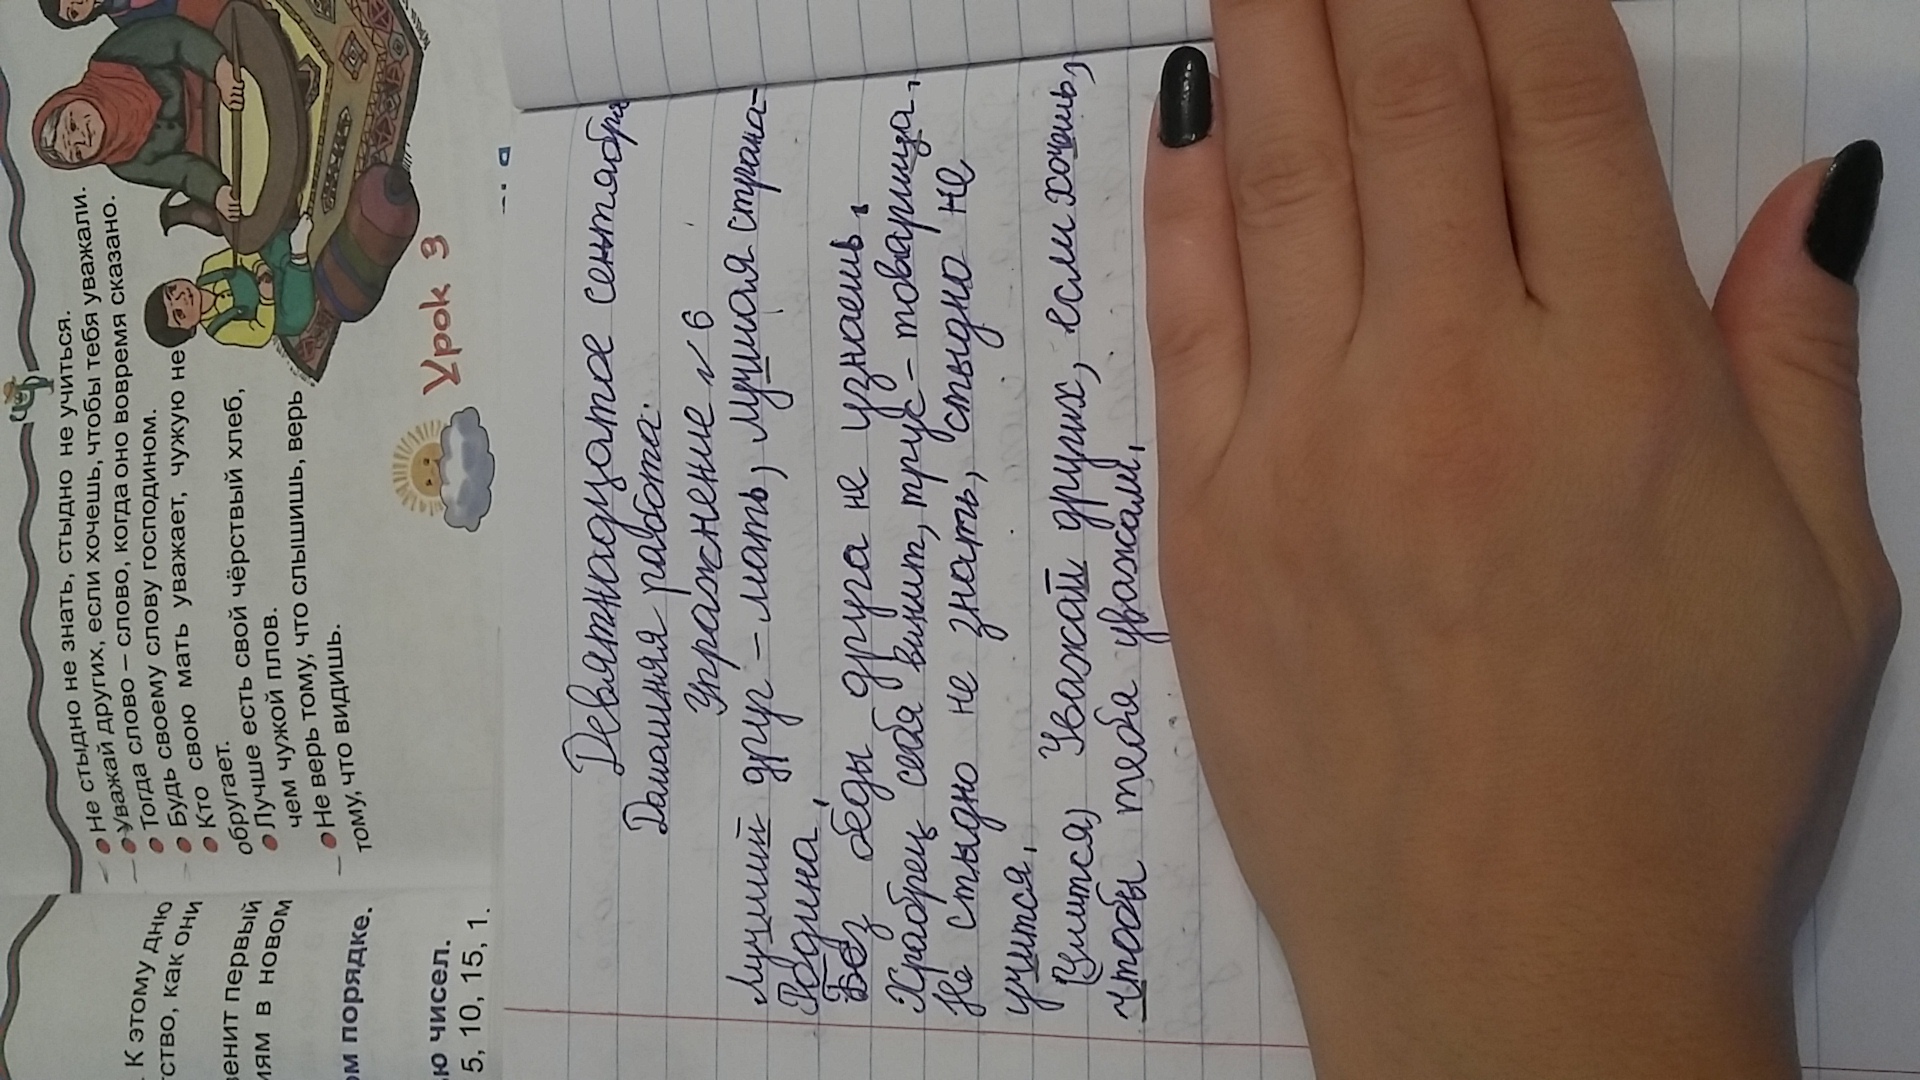 Не стыдно не знать, стыдно не учиться.
Уважай других, если хочешь, чтобы тебя уважали.
Тогда слово – слово, когда оно вовремя сказано.
Будь своему слову господином.
Кто свою мать уважает, чужую не
обругает.
Лучше есть свой чёрствый хлеб,
чем чужой плов.
Не верь тому, что слышишь, верь
тому, что видишь.
Урок 3
К этому дню
тство, как они
венит первый
иям в новом
ом порядке.
ю чисел.
5, 10, 15, 1.
Девятнадцатое сентября
Домашняя работа.
Упражнение № 6
Лучший друг – мать, лучшая страна –
Родина.
Без беды друга не узнаешь.
Храбрец себя винит, трус – товарища.
Не стыдно не знать, стыдно не
учится.
(Учится) Уважай других, если хочешь,
чтобы тебя уважали.